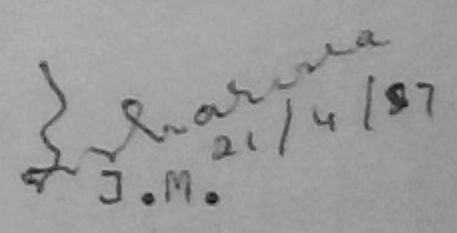 Sharma
21/4/87
J.M.